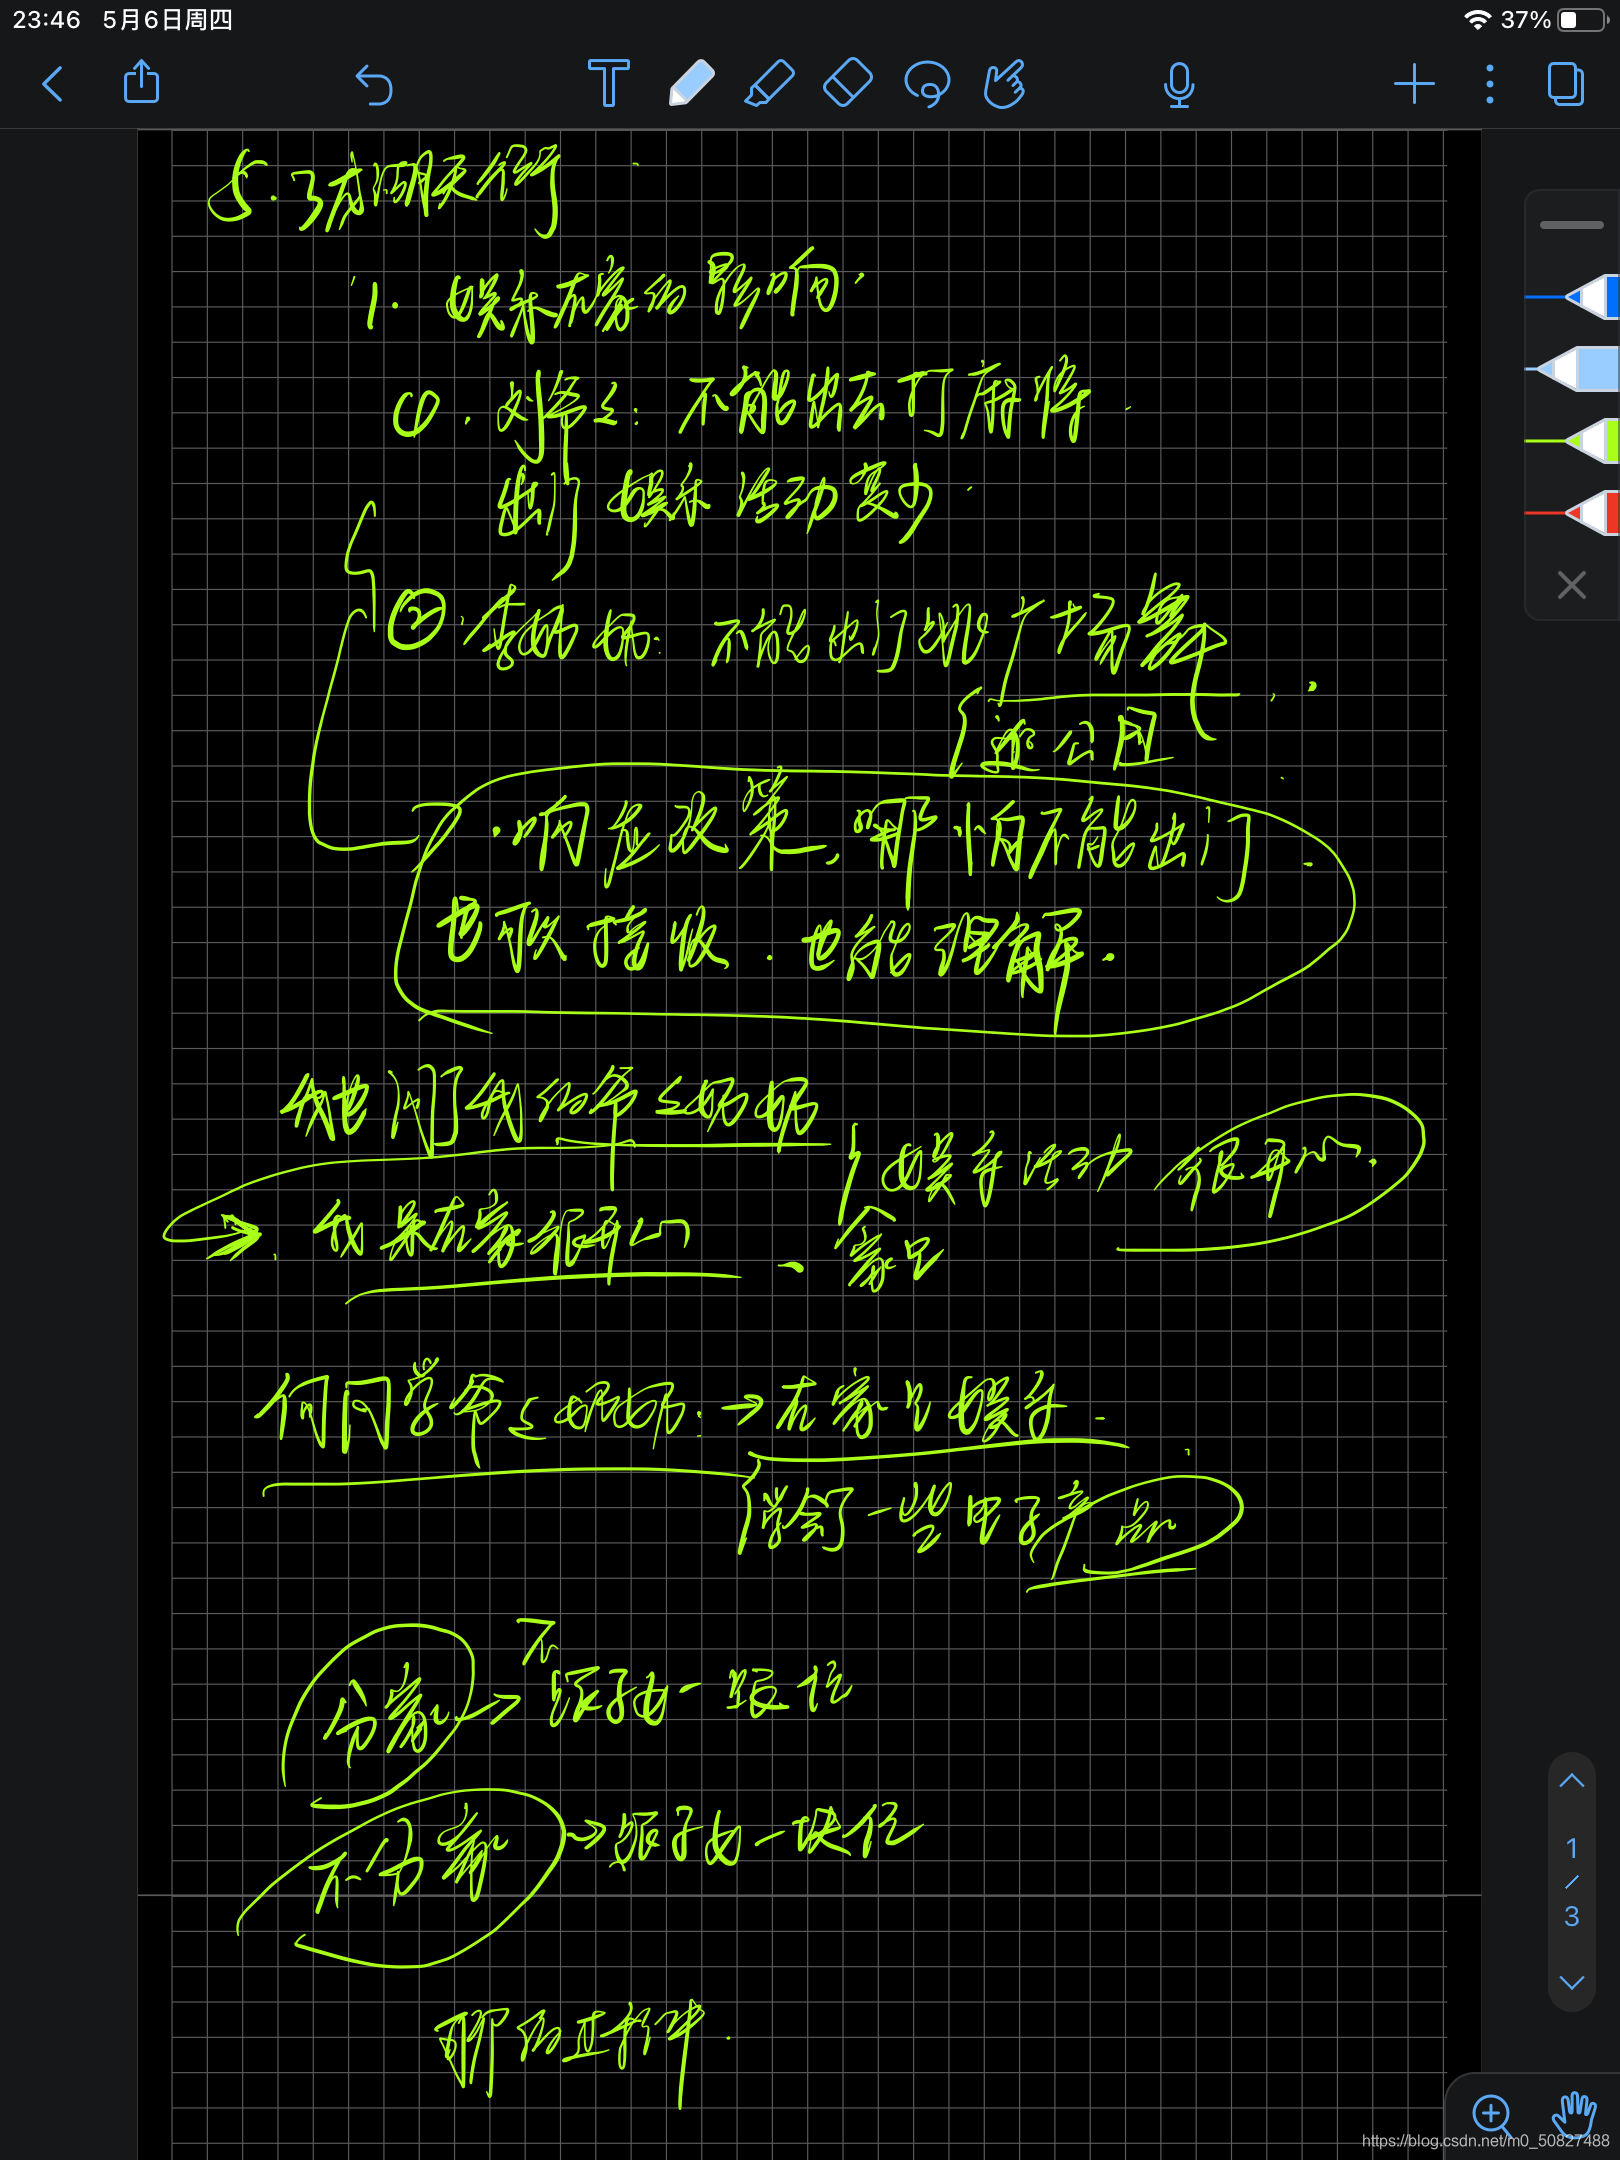 23:46 5月6日周四
37%
5.3成湖天街行
1. 娱乐在家的影响.
①. 刘爷爷: 不能出去打麻将.
出门娱乐活动变少.
②. 李奶奶: 不能出门跳广场舞
逛公园
响应政策, 哪怕不能出门.
也可以接收. 也能理解.
我也问了我的爷爷奶奶
娱乐活动很开心.
我呆在家很开心
何同学爷爷奶奶: → 在家里娱乐.
学会了一些电子产品
不
分离 → 跟子女一跟住
不分离 → 跟子女一块住
聊的过程中.
1
/
3
https://blog.csdn.net/m0_50827488